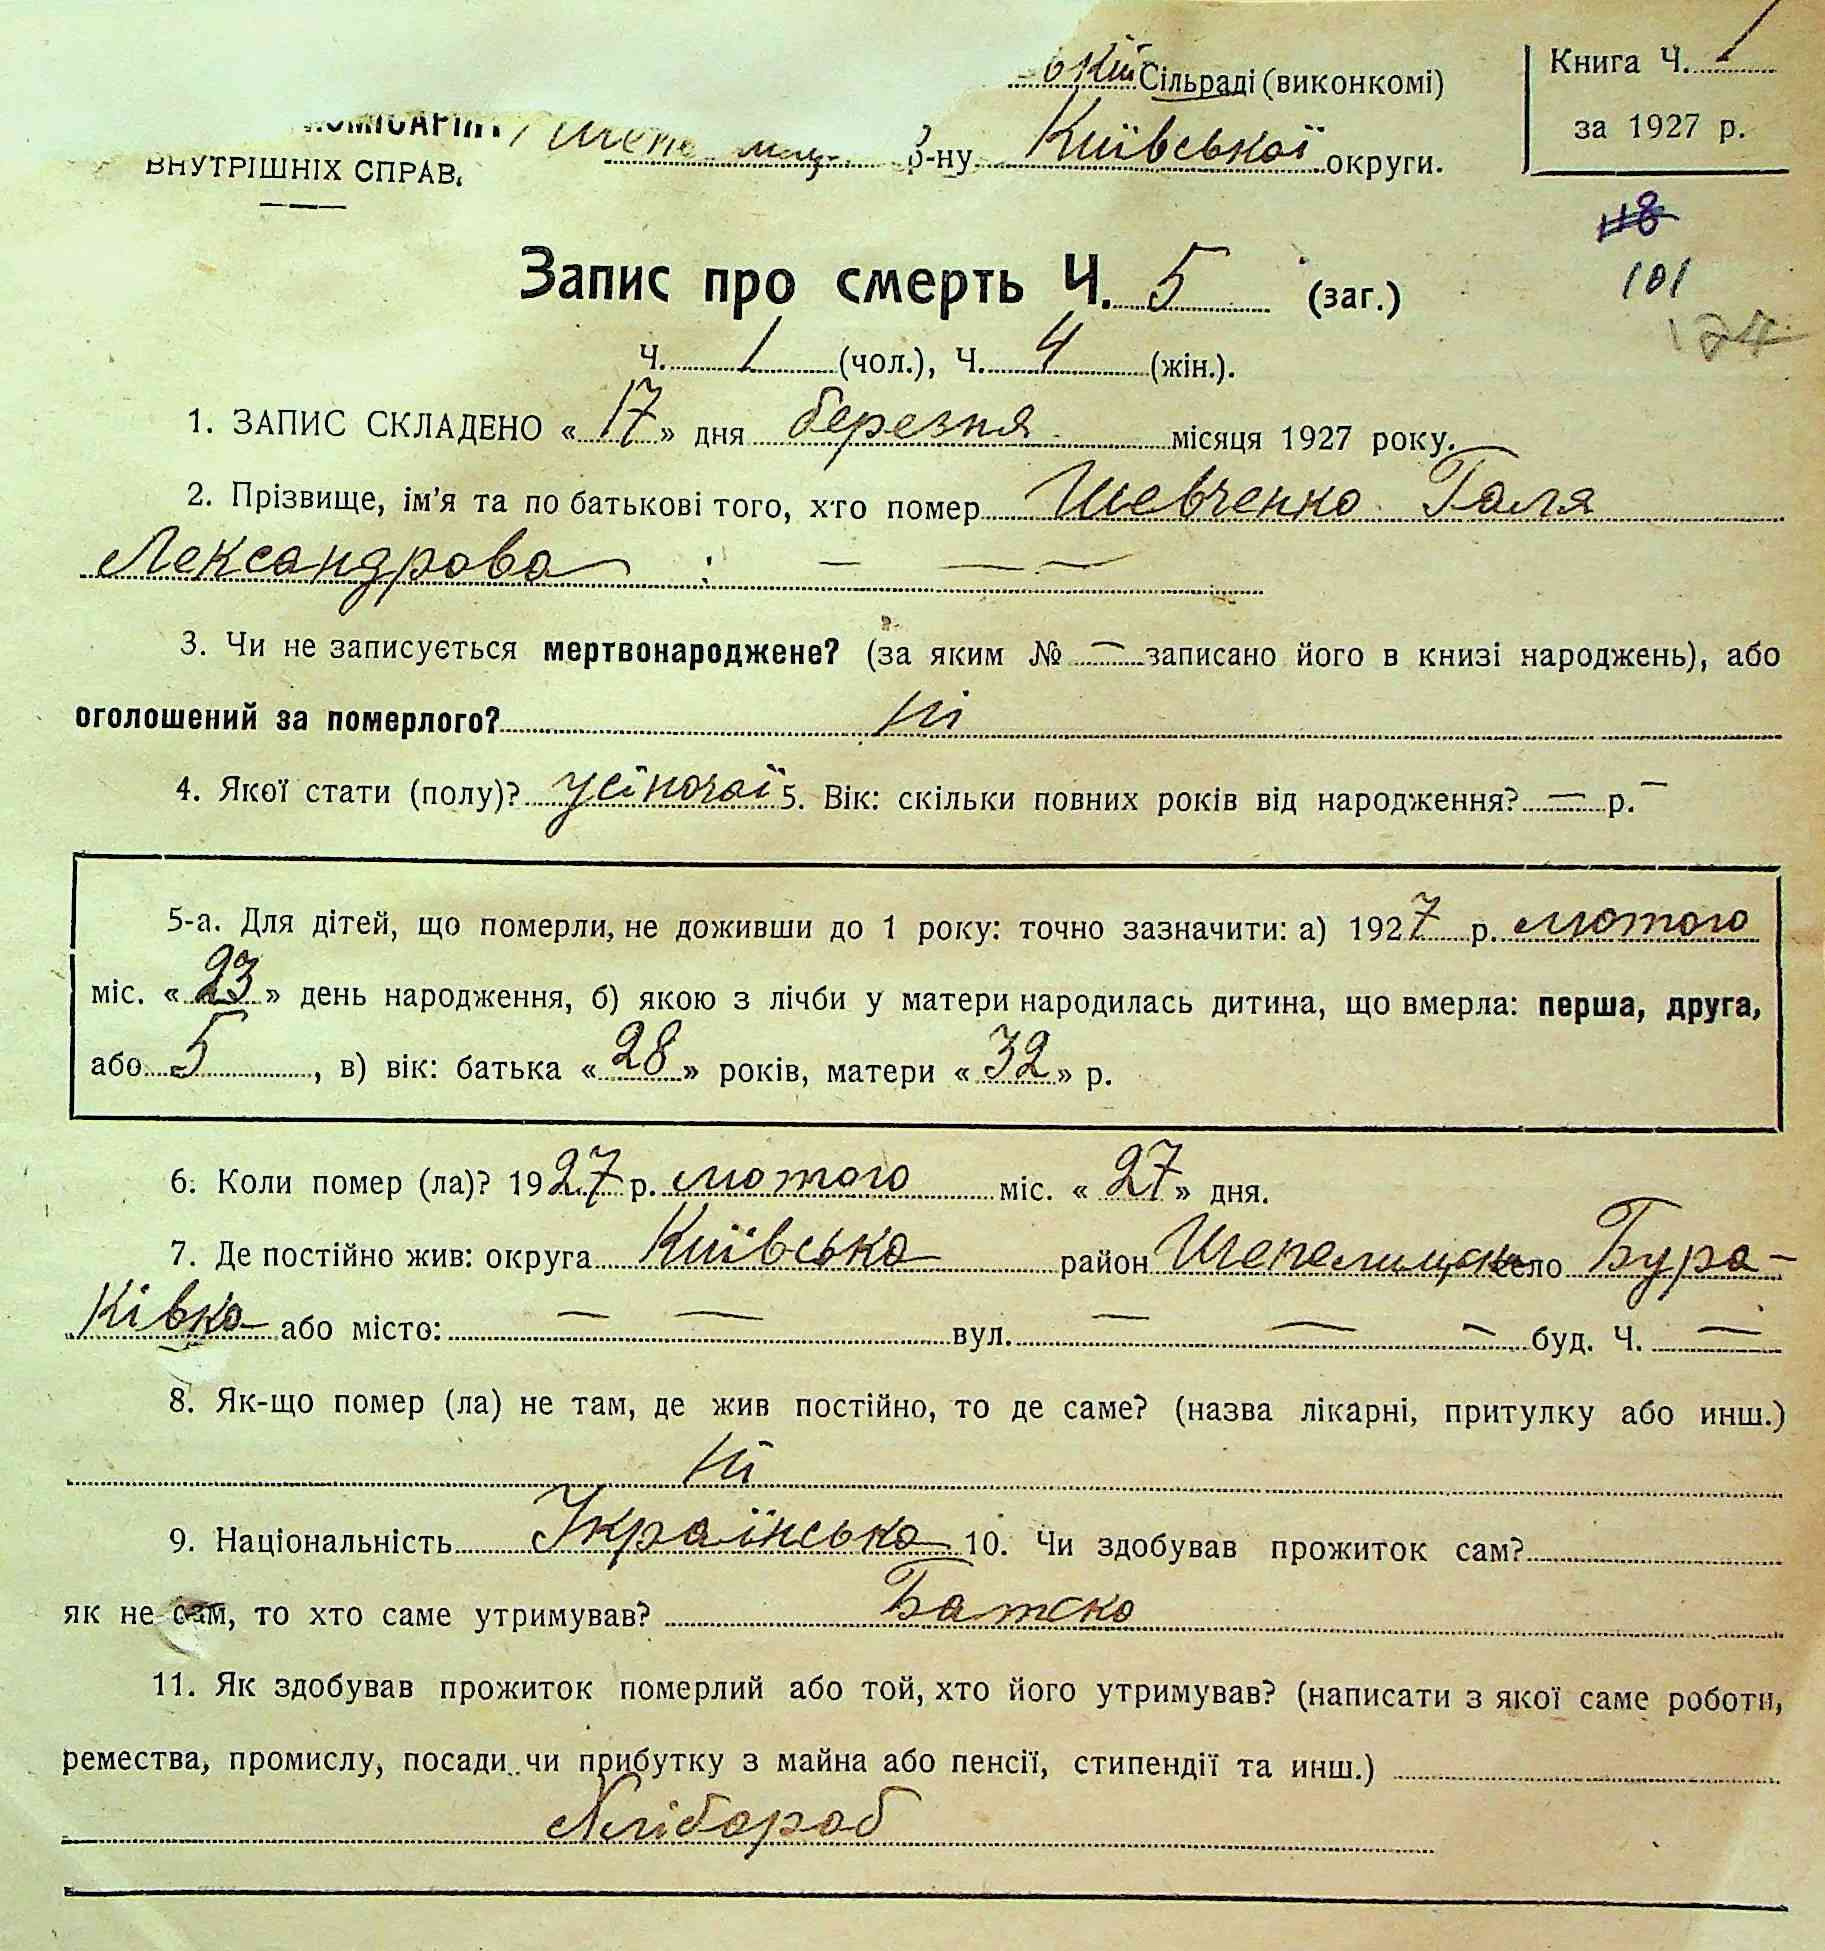 Сільраді (виконкомі)
Книга Ч. 1
за 1927 р.
р-ну Київської округи.
ВНУТРІШНІХ СПРАВ.
118
101
124
Запис про смерть Ч. 5 (заг.)
Ч. 1 (чол.), Ч. 4 (жін.).
1. ЗАПИС СКЛАДЕНО « 17 » дня березня місяця 1927 року.
2. Прізвище, ім'я та по батькові того, хто помер Шевченко Галя
Лександрова — — —
3. Чи не записується мертвонароджене? (за яким № — записано його в книзі народжень), або
оголошений за померлого? ні
4. Якої стати (полу)? жіночої 5. Вік: скільки повних років від народження? — р. —
5-а. Для дітей, що померли, не доживши до 1 року: точно зазначити: а) 1927 р. лютого
міс. « 23 » день народження, б) якою з лічби у матери народилась дитина, що вмерла: перша, друга,
або 5, в) вік: батька « 28 » років, матери « 32 » р.
6. Коли помер (ла)? 1927 р. лютого міс. « 27 » дня.
7. Де постійно жив: округа Київська район Шепелицьк село Бура-
ківка або місто: — — вул. — — — буд. Ч. —
8. Як-що помер (ла) не там, де жив постійно, то де саме? (назва лікарні, притулку або инш.)
ні
9. Національність Українська 10. Чи здобував прожиток сам?
як не сам, то хто саме утримував? Батько
11. Як здобував прожиток померлий або той, хто його утримував? (написати з якої саме роботи,
ремества, промислу, посади чи прибутку з майна або пенсії, стипендії та инш.)
Хлібороб